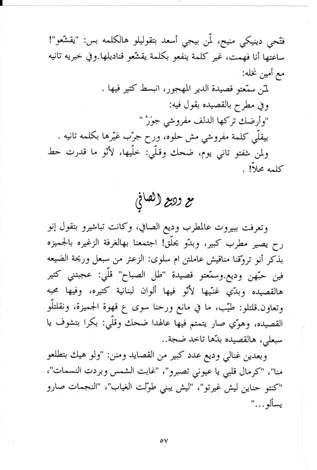 فتّحي دينيكي منيح، لمّن بيجي أسعد بتقوليلو هالكلمه بس: "يقشّعو"!
ساعتها أنا فهمت، غير كلمة ينفعو بكلمة يقشّعو قناديلها. وفي خبريه تانيه
مع أمين نخله:
لمّن سمّعتو قصيدة الدير المهجور، انبسط كتير فيها.
وفي مطرح بالقصيده بقول فيه:
"وأرضك تركها الدلف مفروشي جوَرْ"
بيقلّي كلمة مفروشي مش حلوه، ورح جرّب غيّرها بكلمه تانيه.
ولمن شفتو تاني يوم، ضحك وقلّي: خلّيها، لأنّو ما قدرت حط
كلمه محلاّ!.
مع وديع الصافي
وتعرفت ببيروت عالمطرب وديع الصافي، وكانت تباشيرو بتقول إنو
رح يصير مطرب كبير، وبدّو يحلّق! اجتمعنا بهالغرفة الزغيره بالجميزه
بذكر أنو تروّقنا مناقيش عاملتن ام سلوى: الزعتر من سبعل وريحة الضيعه
فين حبّهن وديع. وسمّعتو قصيدة "طل الصباح" قلّي: عجبتني كتير
هالقصيده وبدّي غنّيها لأنّو فيها ألوان لبنانية كتيره، وفيها محبه
وتعاون. قلتلو: طيّب، ما في مانع ورحنا سوى ع قهوة الجميزة، ونقلتلو
القصيده، وهوّي صار يتمتم فيها عالهدا ضحك وقلّي: بكرا بتشوف يا
سبعلي، هالقصيده بدّها تاخد ضجة..
وبعدين غنالي وديع عدد كبير من القصايد ومنن: "ولو هيك بتطلعو
منا"، "كرمال قلبي يا عيوني تصبرو"، "غابت الشمس وبردت النسمات"،
"كنتو حناين ليش غيرتو"، "ليش بيني طوّلت الغياب"، "النجمات صارو
يسألو..."
٥٧